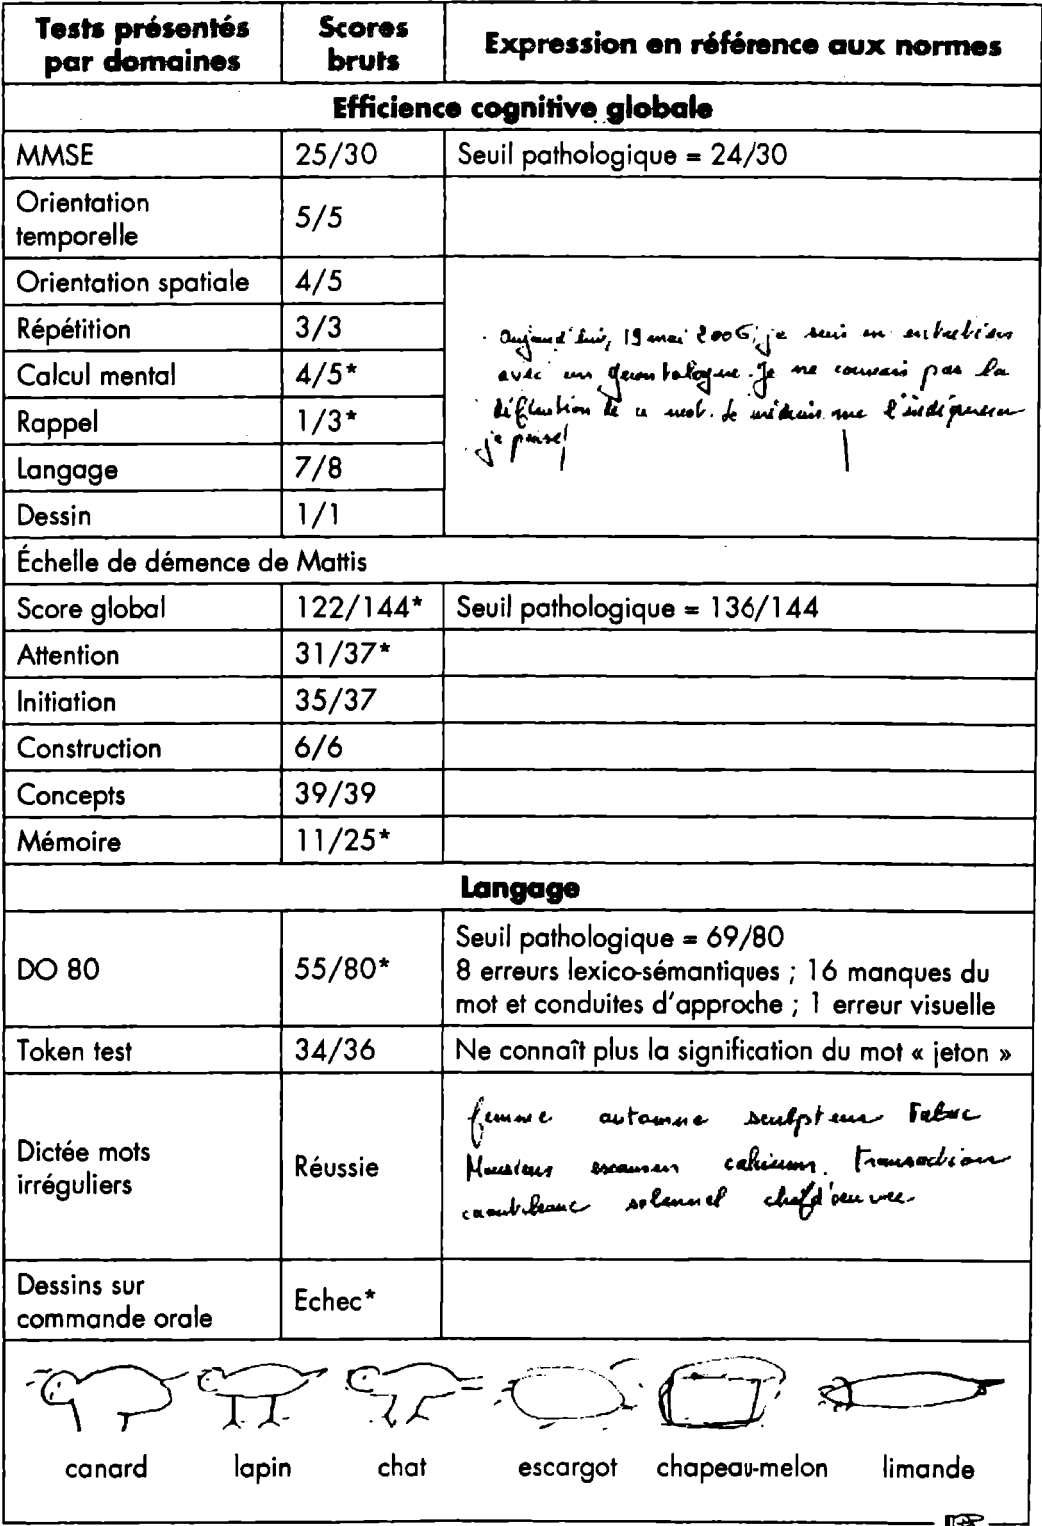 Tests présentés par domaines
Scores bruts
Expression en référence aux normes
Efficience cognitive globale
MMSE 25/30 Seuil pathologique = 24/30
Orientation temporelle 5/5
Orientation spatiale 4/5
Répétition 3/3
Calcul mental 4/5*
Rappel 1/3*
Langage 7/8
Dessin 1/1
Aujourd'hui, 19 mai 2006, je suis en
avec un je ne connais pas la
de ce mot. Le médecin me
je pense
Échelle de démence de Mattis
Score global 122/144* Seuil pathologique = 136/144
Attention 31/37*
Initiation 35/37
Construction 6/6
Concepts 39/39
Mémoire 11/25*
Langage
DO 80 55/80* Seuil pathologique = 69/80
8 erreurs lexico-sémantiques ; 16 manques du
mot et conduites d'approche ; 1 erreur visuelle
Token test 34/36 Ne connaît plus la signification du mot « jeton »
Dictée mots irréguliers Réussie
femme automne sculpteur Tabac
Monsieur examen transaction
solennel chef d'œuvre
Dessins sur commande orale Echec*
canard lapin chat escargot chapeau-melon limande